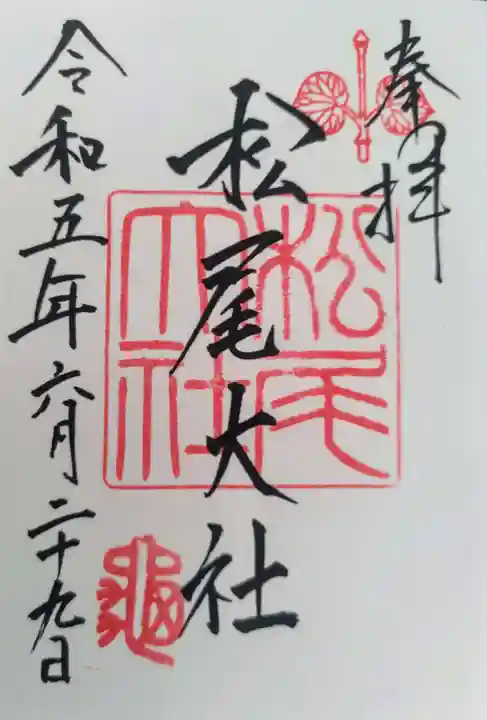 奉拝
松尾大社
松尾大社
令和五年六月二十九日
亀